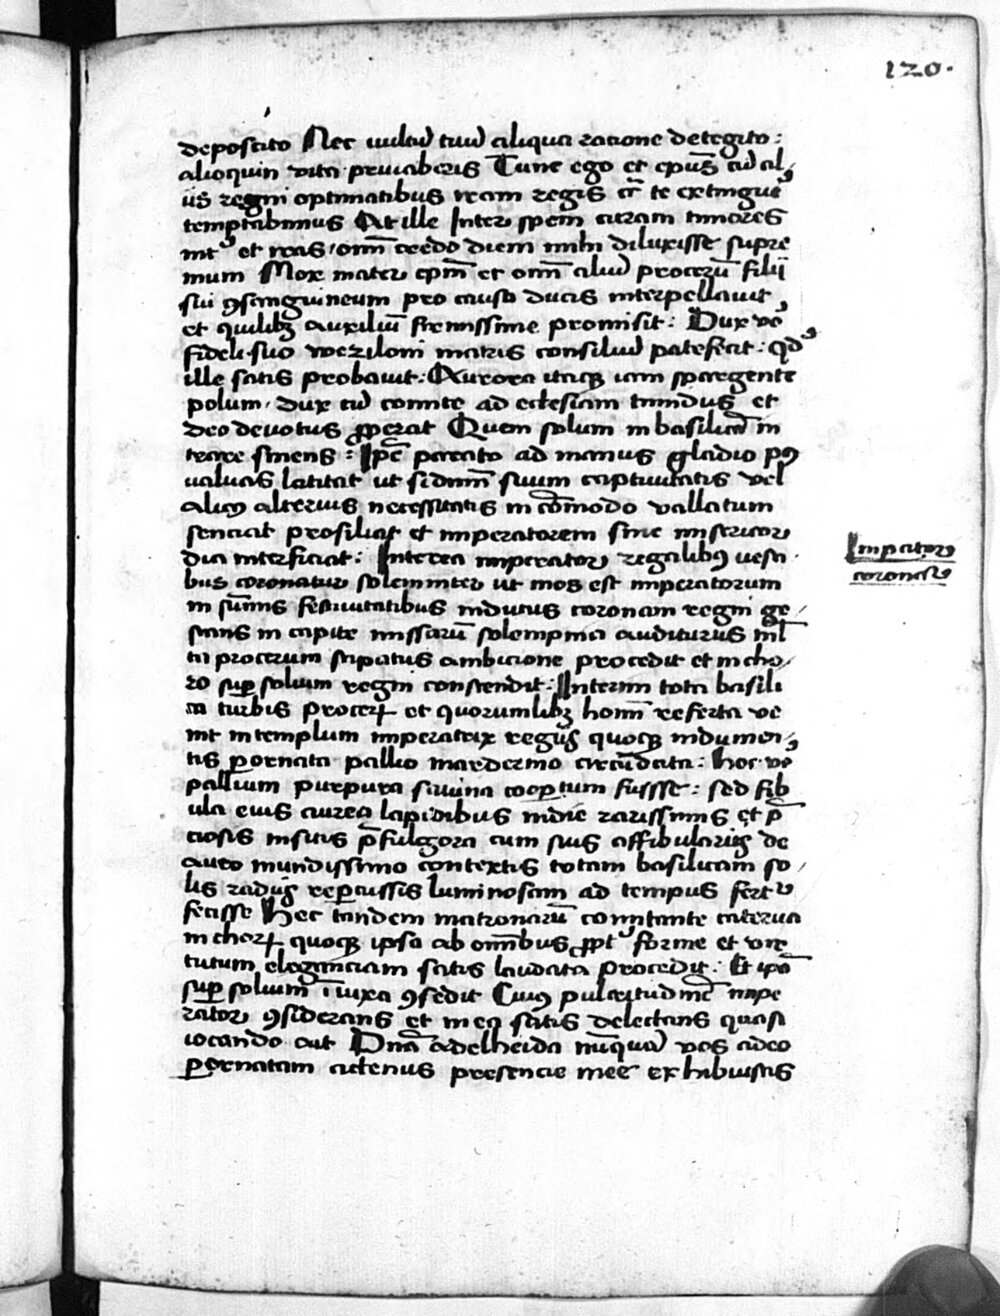 120.
deposcito Nec uultū tuū aliqua ratione detegito :
alioquin vita priuaberis Tunc ego et ep̄us cū al
iis regni optimatibus iram regis ut̄ te extinguet
temptabimus At ille Inter spem curam timores
int᷒ et iras om̄ credo diem mihi diluxisse supre
mum Mox mater ep̄m et om̄ aliud procerū filii
sui ꝯsanguineum pro causa ducis interpellauit
et quilibꝫ auxiliū firmissime promisit : Dux v̄o
fideli suo weziloni matris consiliū patefecit : qd᷒
ille satis probauit : Aurora itaqꝫ iam spargente
polum dux cū comite ad ecclesiam timidus et
deo deuotus ꝓperat Quem solum in basilicā in
trare sinens : Ip̄e parato ad manus gladio p9
ualuas latitat ut si dn̄m suum captiuitatis vel
alicꝰ alterius necessitatis in cōmodo vallatum
senciat prosiliat et imperatorem sine misericor
dia interficiat : Interea imperator regalibꝰ uesti
bus coronatur solemniter ut mos est imperatorum
in sum̄is festiuitatibus indutus coronam regni ge
stans in capite missarū solempnia auditurus ml̄
ta procerum stipatus ambicione procedit et in cho
ro suꝑ solium regni conscendit : Interim tota basili
ca turbis procerꝝ et quorumlibꝫ homī referta ve
nit in templum imperatrix regiis quoqꝫ indumen
tis ꝑornata pallio mardermo circūdata : hoc v̄o
pallium purpura sciuina cooꝑtum fuisse : sed fib
ula eius aurea lapidibus indie rarissimis et p̄
ciosis insitis p̄fulgora cum suis affibulariis de
auro mundissimo contextis totam basilicam so
lis radiis reꝑcussis luminosam ad tempus fert᷒
fecisse Hec tandem matronarū comitante caterua
in chorꝝ quoqꝫ ipsa ab om̄ibus ꝓpt᷒ forme et vir
tutum elegantiam satis laudata procedit : Et ip̄a
suꝑ solium iuxa ꝯsedit Cuiꝰ pulcritudinē impe
rator ꝯsiderans et in ea satis delectans quasi
iocando ait Dn̄a adelheida nūquā vos adeo
ꝑornatam actenus presencie mee exhibuistis
Impator
coronatꝰ